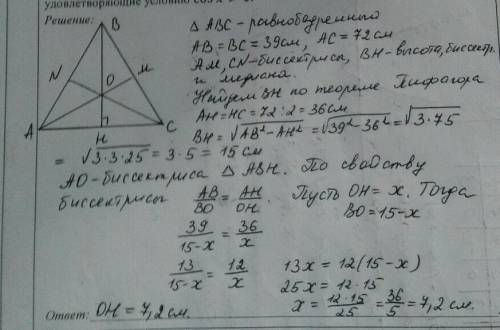 удовлетворяющие условию cos
Решение:
B
N
M
O
A
H
C
△ ABC - равнобедренный
AB = BC = 39см, AC = 72см
AM, CN - биссектрисы, BH - высота, биссектр.
и медиана.
Найдем BH по теореме Пифагора
AH = HC = 72 : 2 = 36см
BH = √(AB² - AH²) = √(39² - 36²) = √(3·75)
= √(3·3·25) = 3·5 = 15 см
AO - биссектриса △ ABH. По свойству
биссектрисы AB/BO = AH/OH. Пусть OH = x. Тогда
BO = 15 - x
39/(15-x) = 36/x
13/(15-x) = 12/x 13x = 12(15-x)
25x = 12·15
x = 12·15/25 = 36/5 = 7,2 см.
Ответ: OH = 7,2 см.